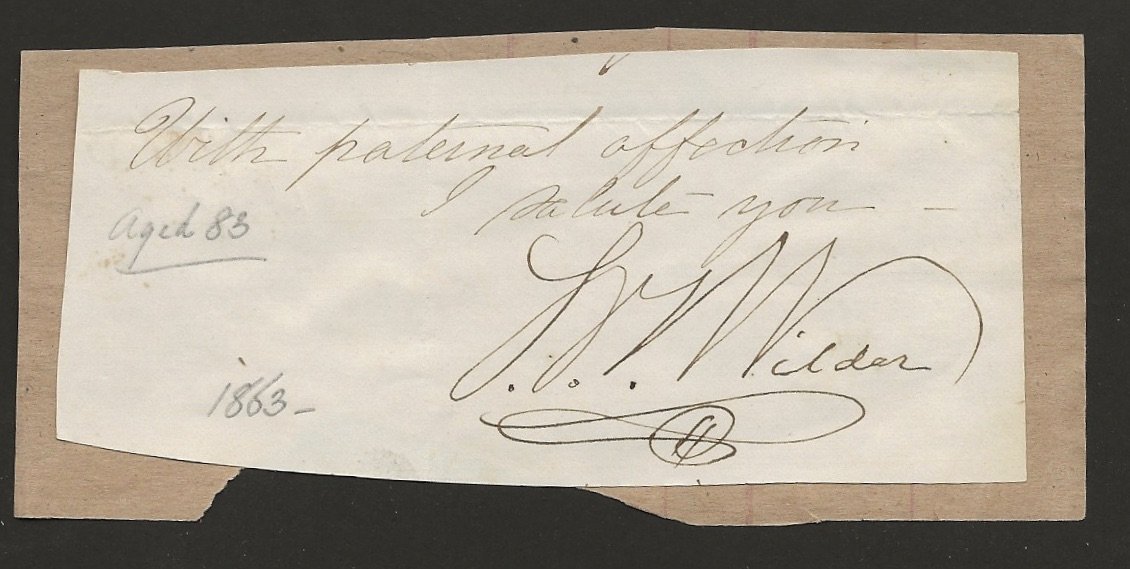 With paternal affection
I salute you —
Aged 83
S. V. S. Wilder
1863 –